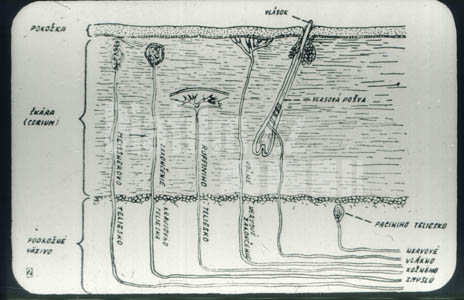 VLÁSOK
POKOŽKA
ŠKÁRA
(CORIUM)
VLASOVÁ POŠVA
MEISSNEROVO TELIESKO
ZAKONČENIE
KRAUSEHO TELIESKO
RUFFINIHO TELIESKO
VOĽNÉ
NERVOVÉ ZAKONČENIE
PACINIHO TELIESKO
PODKOŽNÉ
VÄZIVO
NERVOVÉ
VLÁKNO
KOŽNÉHO
ZMYSLU